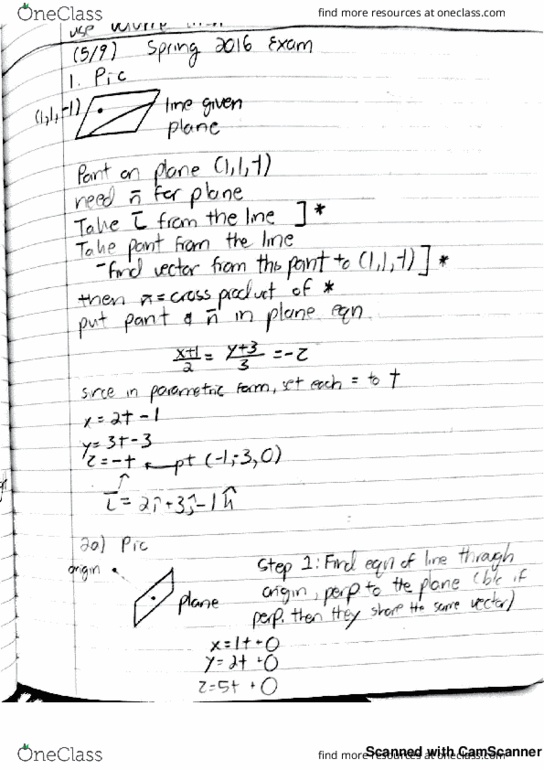 OneClass
find more resources at oneclass.com
use
(5/9) Spring 2016 Exam
1. Pic
(1,1,-1)
line given
plane
Point on plane (1,1,-1)
need n̄ for plane
Take L̄ from the line ] *
Take point from the line
- find vector from this point to (1,1,-1) ] *
then n̄ = cross product of *
put point & n̄ in plane eqn
x+1/2 = y+3/3 = -z
since in parametric form, set each = to t
x = 2t - 1
y = 3t - 3
z = -t ← pt (-1,-3,0)
↑
L̄ = 2î + 3ĵ - 1k̂
2a) Pic
origin
plane
Step 1: Find eqn of line through
origin, perp to the plane (b/c if
perp. then they share the same vector)
x = 1t + 0
y = 2t + 0
z = 5t + 0
OneClass
find more resources at oneclass.com
Scanned with CamScanner